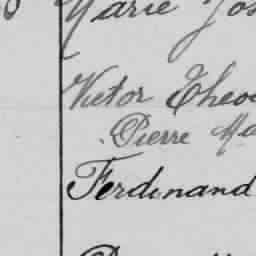 Marie Jos
Victor Theo
Pierre Ma
Ferdinand